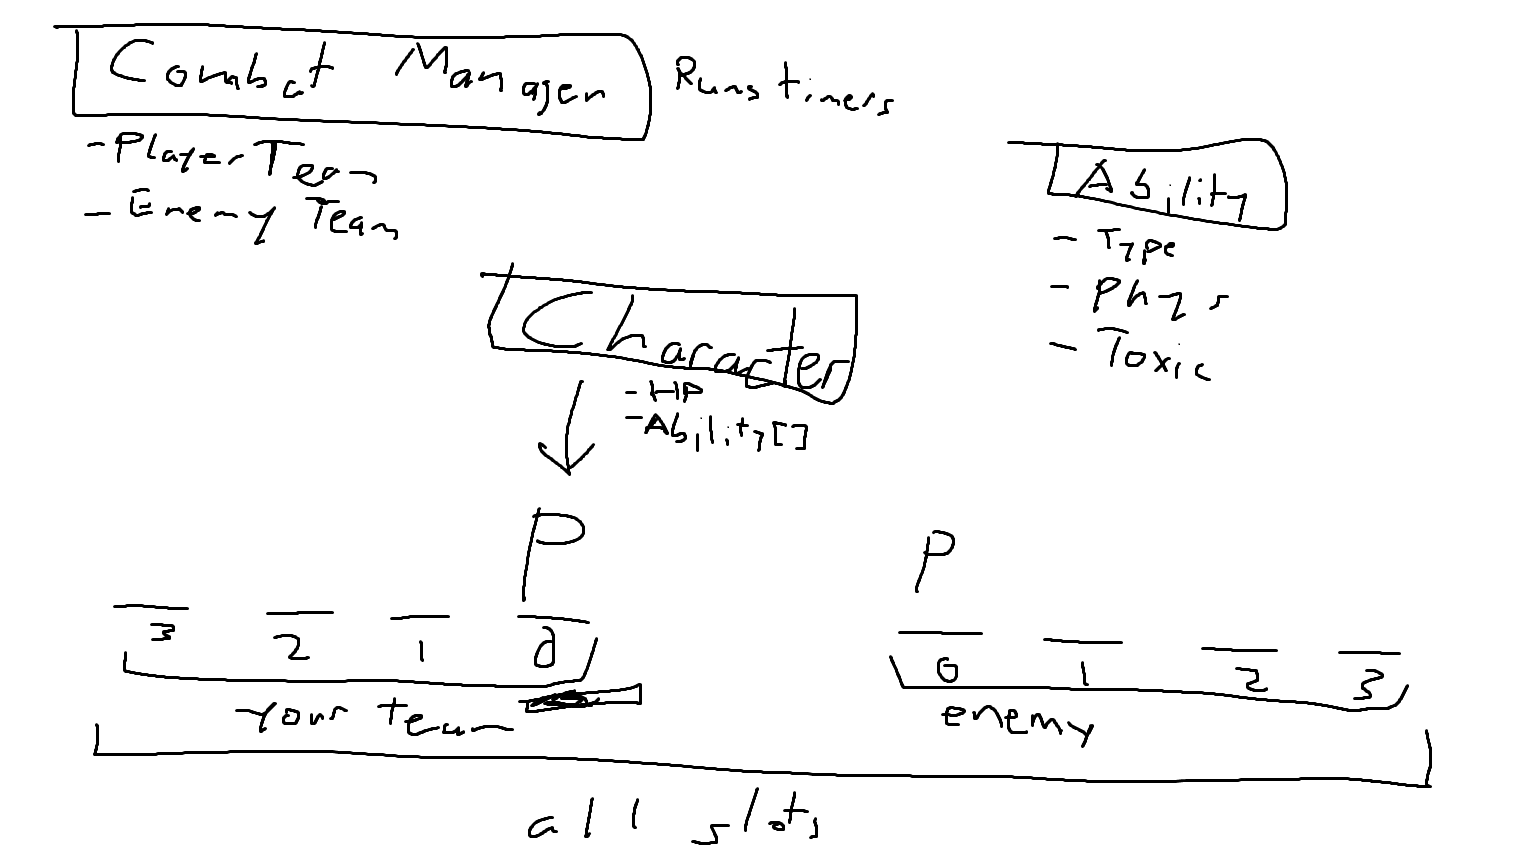 Combat Manager
Runs timers
- Player Team
- Enemy Team
Ability
- Type
- Phys
- Toxic
Character
- HP
- Ability[]
P
P
3 2 1 0
0 1 2 3
your team
enemy
all slots